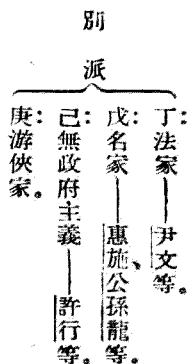 別派
丁：法家——尹文等。
戊：名家——惠施、公孫龍等。
己：無政府主義——許行等。
庚：游俠家。